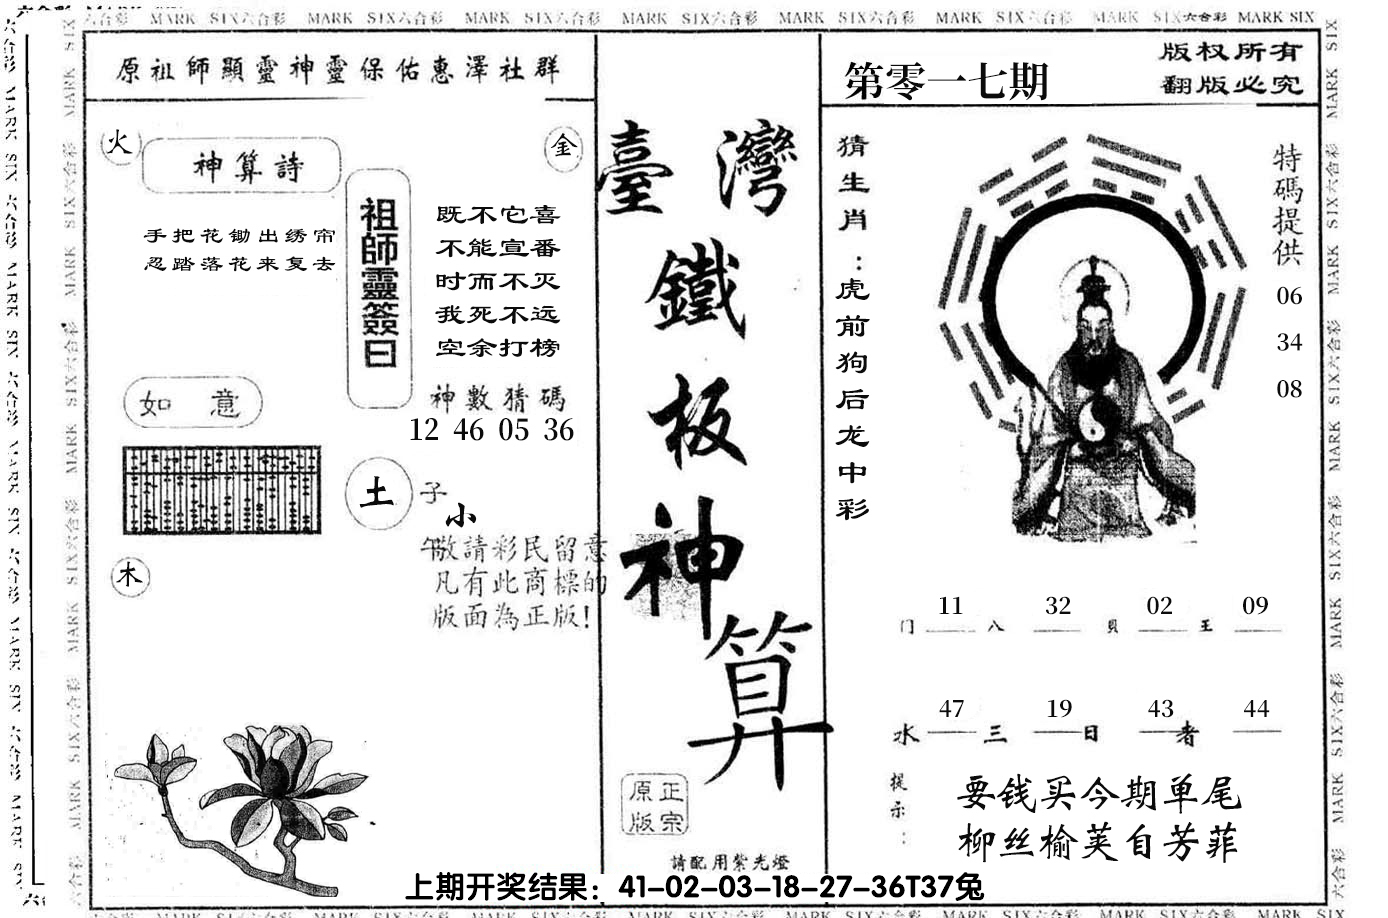 MARK SIX六合彩 MARK SIX六合彩 MARK SIX六合彩 MARK SIX六合彩 MARK SIX六合彩 MARK SIX六合彩 MARK SIX六合彩 MARK SIX
原祖師顯靈神靈保佑惠澤社群
火
金
神算詩
手把花锄出绣帘
忍踏落花来复去
祖師靈簽曰
既不它喜
不能宣番
时而不灭
我死不远
空余打榜
神數猜碼
12 46 05 36
如意
土
子
小
午
敬請彩民留意
凡有此商標的
版面為正版!
木
臺灣
鐵
板
神
算
正宗
原版
請配用紫光燈
第零一七期
版权所有
翻版必究
猜生肖:虎前狗后龙中彩
特碼提供
06
34
08
11 32 02 09
门 八 貝 王
47 19 43 44
水 三 日 者
提示:
要钱买今期单尾
柳丝榆荚自芳菲
上期开奖结果：41-02-03-18-27-36T37兔